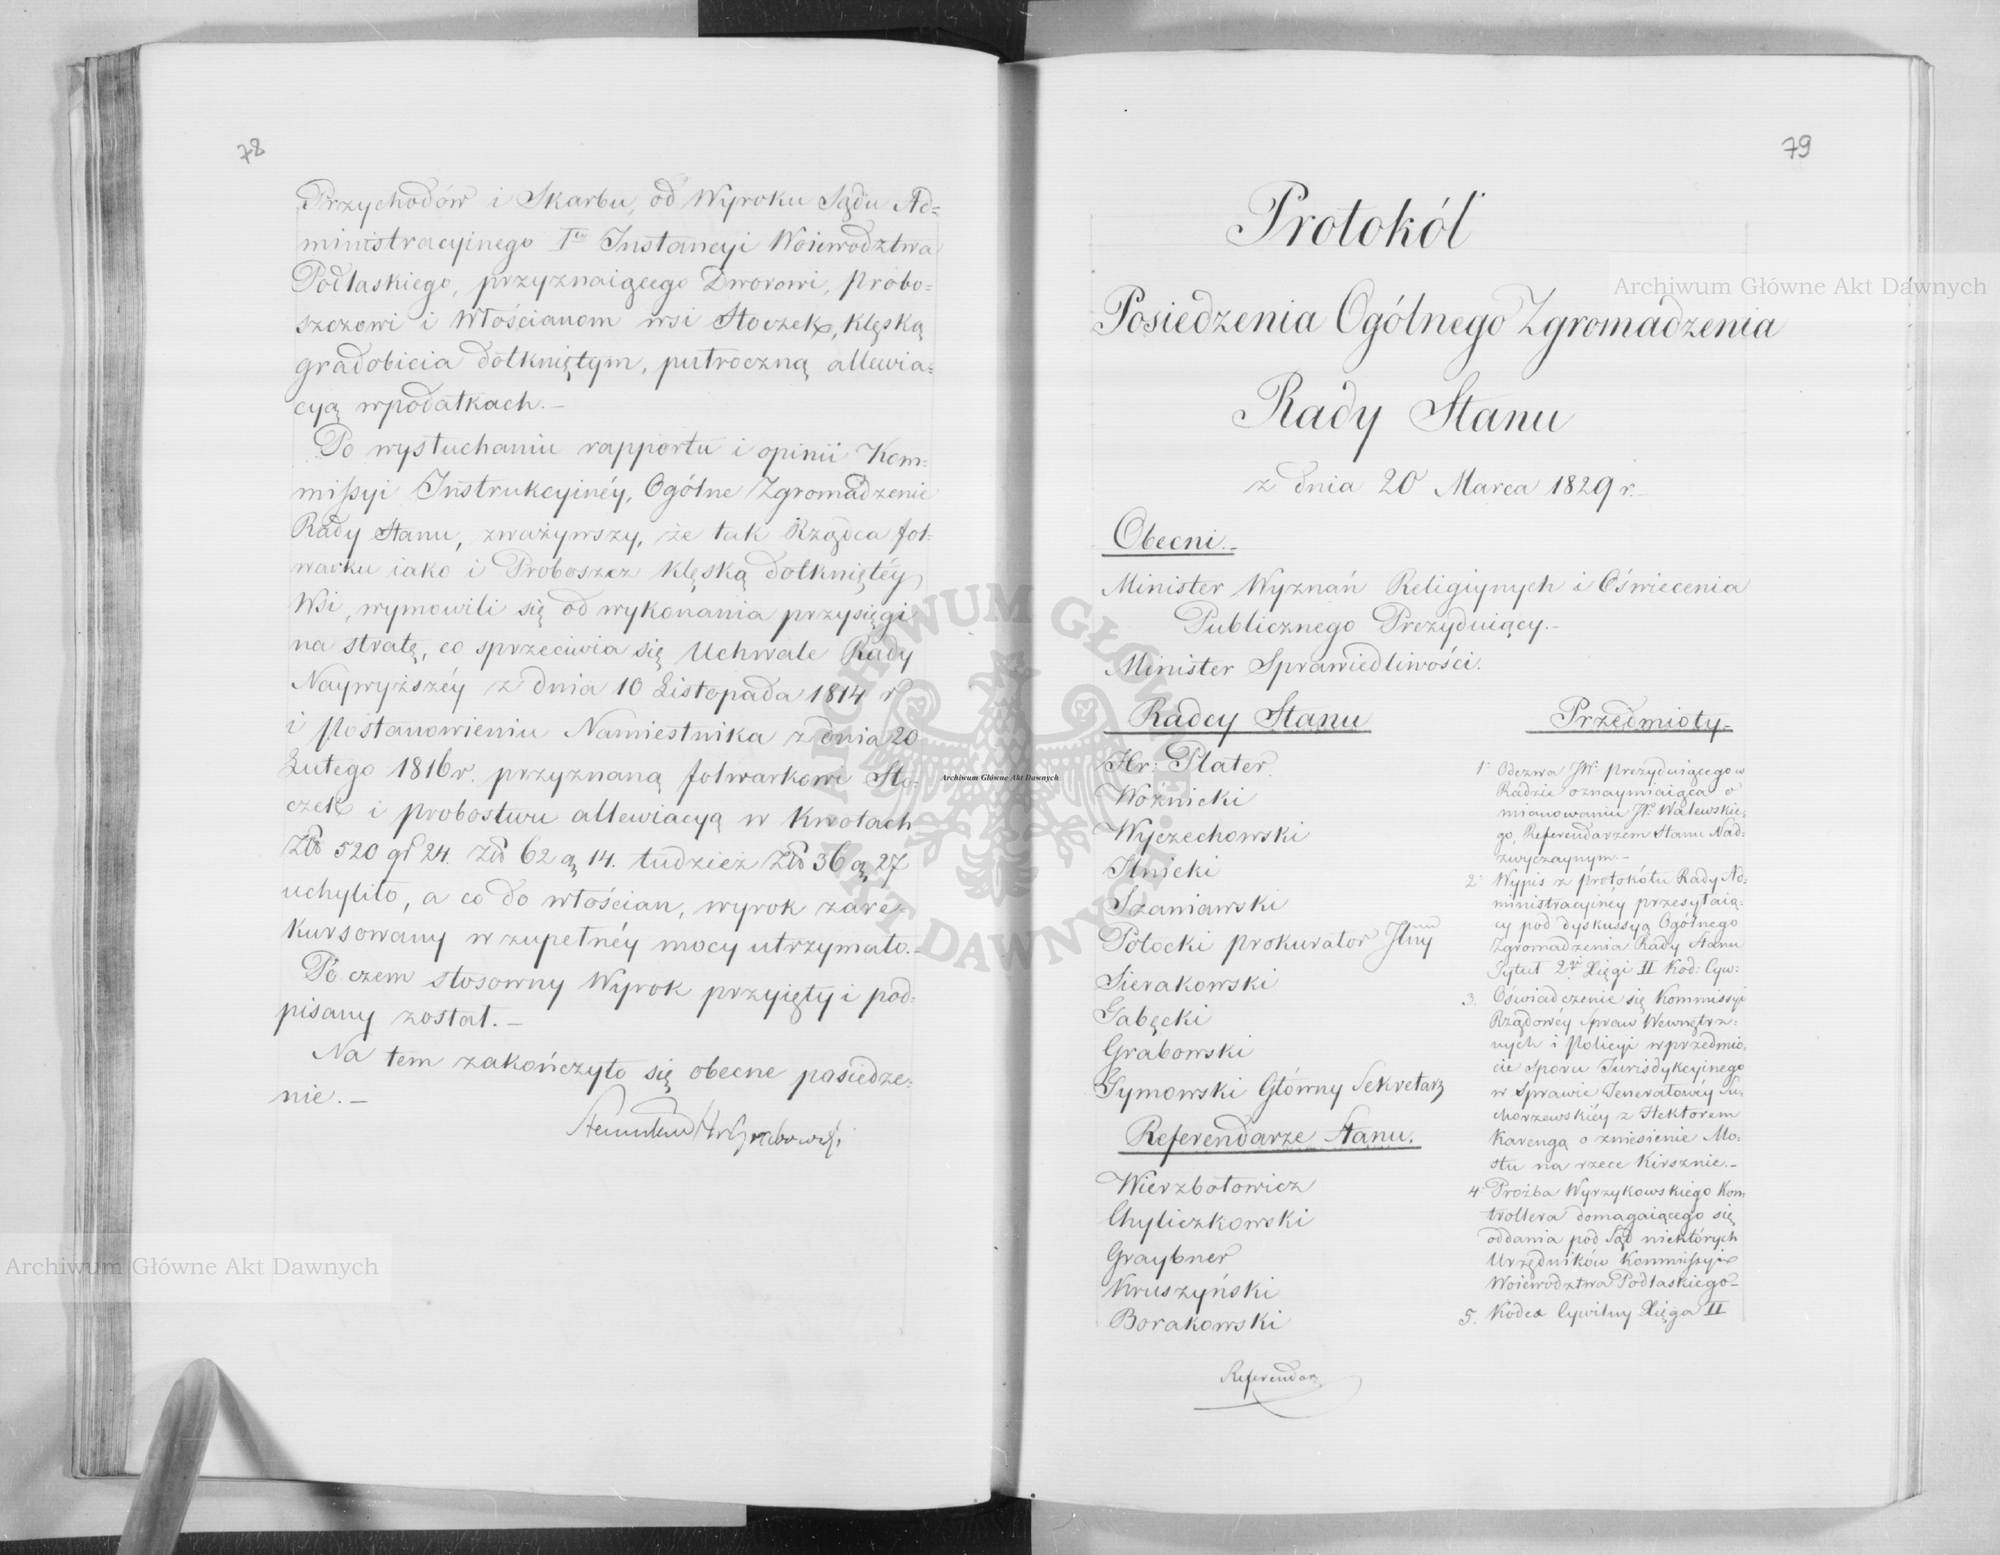 78
Przychodów i Skarbu, od Wyroku Sądu Ad=
ministracyinego Iey Instancyi Woiewodztwa
Podlaskiego, przyznaiącego Dworowi, probo=
szczowi i Włościanom wsi Stoczek, klęską
gradobicia dotkniętym, putroczną allewia=
cyą w podatkach.—
Po wysłuchaniu rapportu i opinii Kom=
missyi Instrukcyinéy, Ogólne Zgromadzenie
Rady Stanu, zważywszy, że tak Rządca fol=
warku iako i Proboszcz klęską dotkniętéy
Wsi, wymowili się od wykonania przysięgi
na stratę, co sprzeciwia się Uchwale Rady
Naywyższéy z dnia 10 Listopada 1814 r
i Postanowieniu Namiestnika z dnia 20
Lutego 1816 r. przyznaną folwarkowi Sto=
czek i probostwu allewiacyą w kwotach
Złł 520 gr 24. Złł 62 g 14. tudzież Złł 36 g 27
uchyliło, a co do włościan, wyrok zare=
kursowany w zupełnéy mocy utrzymało.—
Po czem stosowny Wyrok przyięty i pod=
pisany został.—
Na tem zakończyło się obecne posiedze=
nie.—
79
Protokół
Posiedzenia Ogólnego Zgromadzenia
Rady Stanu
z dnia 20 Marca 1829 r.—
Obecni.—
Minister Wyznań Religiynych i Oświecenia
Publicznego Prezyduiący.—
Minister Sprawiedliwości.
Radcy Stanu
Hr: Plater.
Woźnicki
Wyczechowski
Ilnicki
Szaniawski
Potocki prokurator Jlny
Sierakowski
Gabęcki
Grabowski
Tymowski Główny Sekretarz
Referendarze Stanu.
Wierzbołowicz
Chyliczkowski
Graybner
Kruszyński
Borakowski
Referendarz
Przedmioty=
1° Odezwa JW. prezyduiącego w
Radzie oznaymiaiąca o
mianowaniu JW. Walewskie=
go, Referendarzem Stanu Nad=
zwyczaynym.—
2° Wypis z protokółu Rady Ad=
ministracyinéy przesyłaią=
cy pod dyskussyą Ogólnego
Zgromadzenia Rady Stanu
Tytuł 2gi Xięgi II Kod: Cyw:
3. Oświadczenie się Kommissyi
Rządowéy Spraw Wewnętrz=
nych i Policyi w przedmio=
cie sporu Jurisdykcyinego
w sprawie Jenerałowéy Su=
chorzewskiéy z Hektorem
Karengą o zniesienie Mo=
stu na rzece Kirsznie.—
4° Prożba Wyrzykowskiego Kon=
trollera domagaiącego się
oddania pod Sąd niektórych
Urzędników Kommissyi
Woiewodztwa Podlaskiego—
5. Kodex Cywilny Xięga II
Archiwum Główne Akt Dawnych
Archiwum Główne Akt Dawnych
Archiwum Główne Akt Dawnych
ARCHIWUM GŁÓWNE AKT DAWNYCH